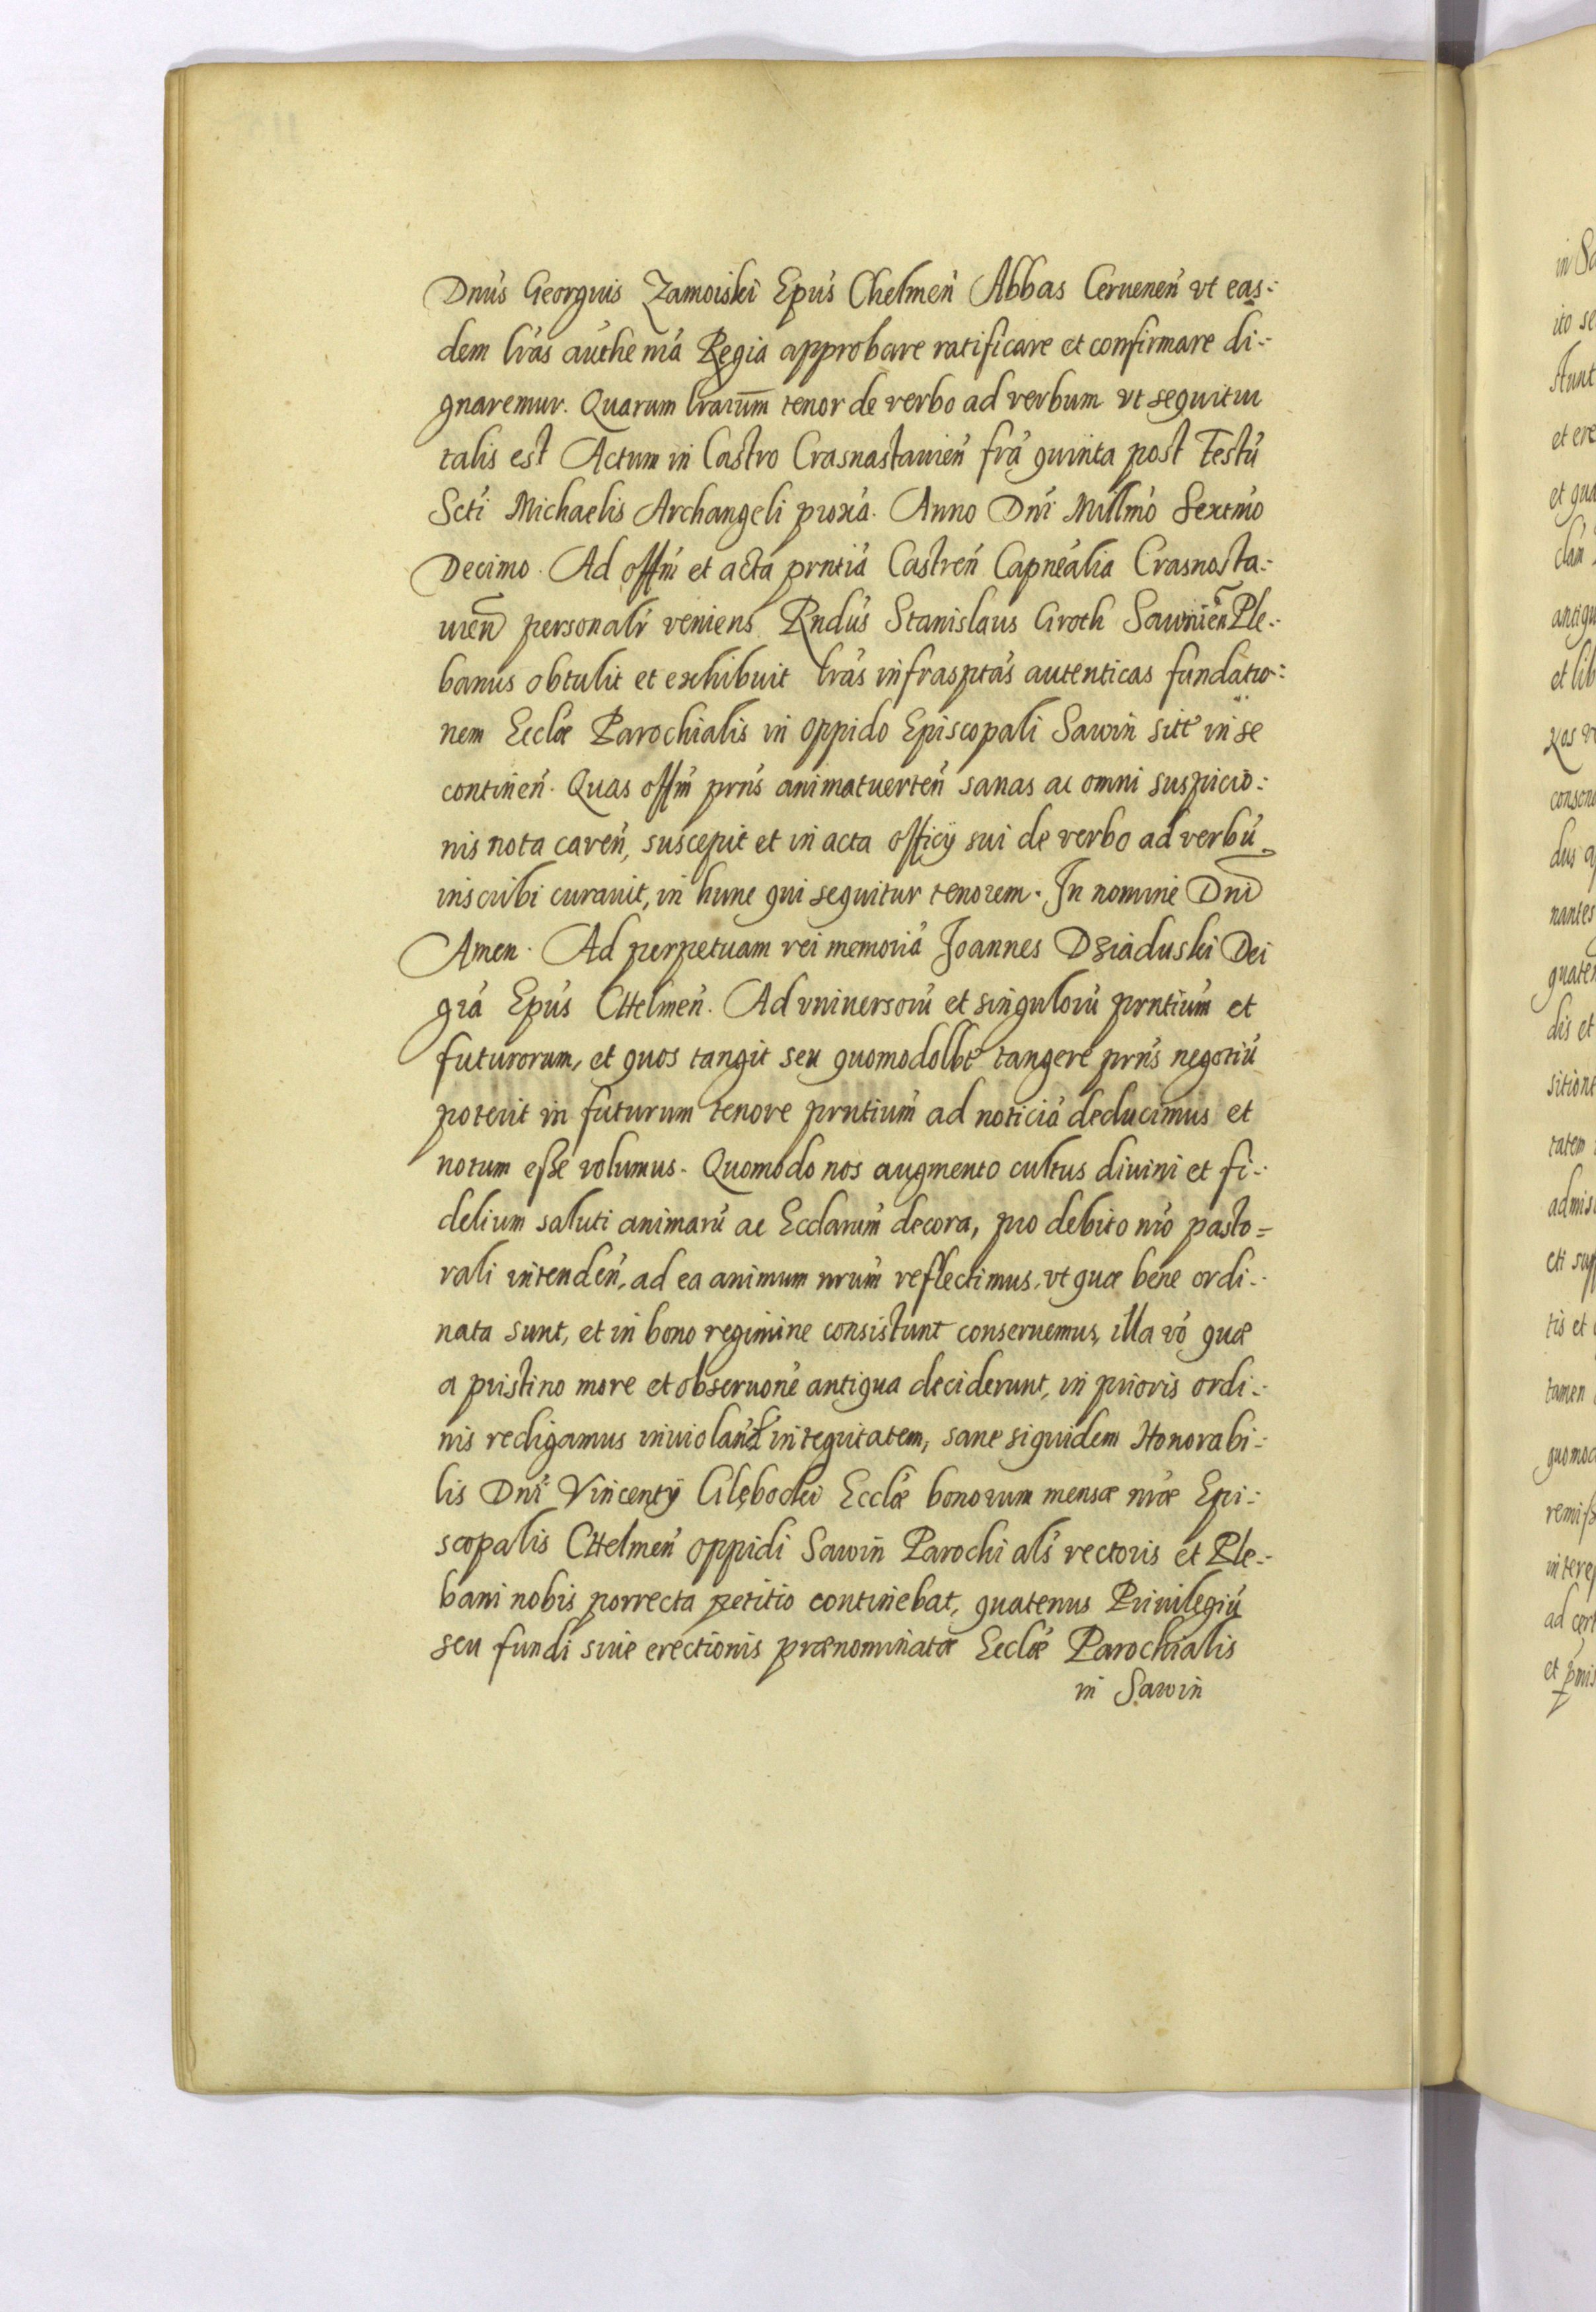 Dnús Georgius Zamoiski Epús Chelmeń Abbas Cerueneń vt eas-
dem lrás auťhe niá Regia approbare ratificare et confirmare di-
gnaremur. Quarum lrarum tenor de verbo ad verbum vt sequitur
talis est Actum in Castro Crasnastauień frá quinta post Festú
Scti Michaelis Archangeli proxá. Anno Dni Millmó Sextmó
Decimo. Ad offm et acta prntiá Castreń Capneália Crasnosta-
uień personalr veniens Rndús Stanislaus Groth Sawinień Ple-
banus obtulit et exhibuit lrás infrasptás autenticas fundatio-
nem Ecclæ Parochialis in oppido Episcopali Sawin sitt in se
contineń. Quas offm prńs animatuerteń sanas ac omni suspicio-
nis nota careń, suscepit et in acta officÿ sui de verbo ad verbú
inscribi curauit, in hunc qui sequitur tenorem. In nomine Dni
Amen. Ad perpetuam rei memoriá Joannes Dziaduski Dei
grá Epús CHelmeń. Ad vniuersorú et singulorú prntium et
futurorum, et quos tangit seu quomodolbt tangere prńs negotiú
poterit in futurum tenore prntium ad noticiá deducimus et
notum eße volumus. Quomodo nos augmento cultus diuini et fi-
delium saluti animarú ac Ecclarum decora, pro debito nró pasto-
rali intendeń, ad ea animum nrum reflectimus, vt quæ bene ordi-
nata sunt, et in bono regimine consistunt conseruemus, illa vó quæ
a pristino more et obseruoné antiqua deciderunt, in prioris ordi-
nis redigamus inuiolandá integritatem, sane siquidem Honorabi-
lis Dni Vincentÿ Glębocki Ecclæ bonorum mensæ nræ Epi-
scopalis CHelmeń oppidi Sawin Parochialś rectoris et Ple-
bani nobis porrecta petitio continebat, quatenus Priuilegiú
seu fundi siue erectionis prænominatæ Ecclæ Parochialis
in Sawin